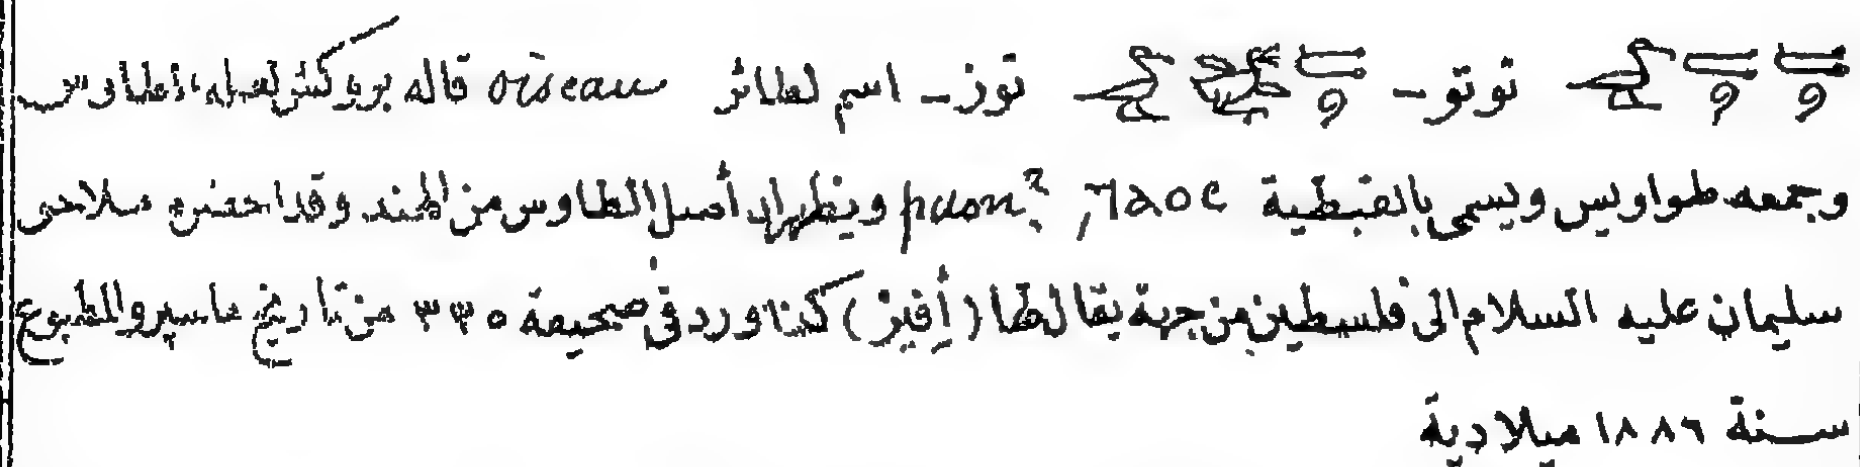 توتو – توز – اسم لطائر oiseau قاله بروكش لعله الطاوس
وجمعه طواويس ويسمى بالقبطية paon? ويظهران أصل الطاوس من الهند وقد احضره ملاحى
سليمان عليه السلام الى فلسطين من جهة يقال لها (أفيز) كذا ورد فى صحيفة ٣٣٥ من تاريخ ماسپرو المطبوع
سنة ١٨٨٦ ميلادية